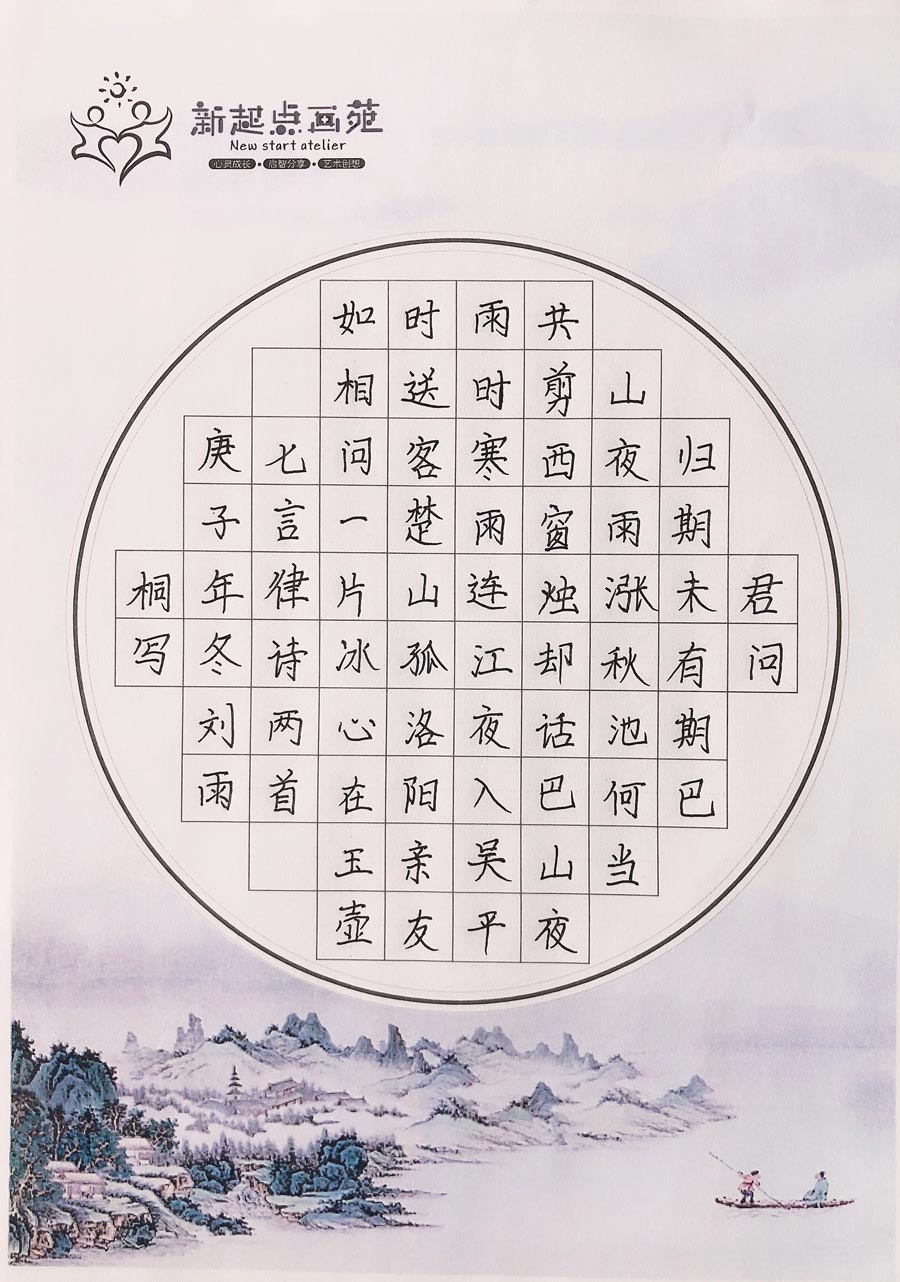 新起点画苑
New start atelier
心灵成长•启智分享•艺术创想
君问
归期未有期巴
山夜雨涨秋池何当
共剪西窗烛却话巴山夜
雨时寒雨连江夜入吴平
时送客楚山孤洛阳亲友
如相问一片冰心在玉壶
七言律诗两首
庚子年冬刘雨
桐写